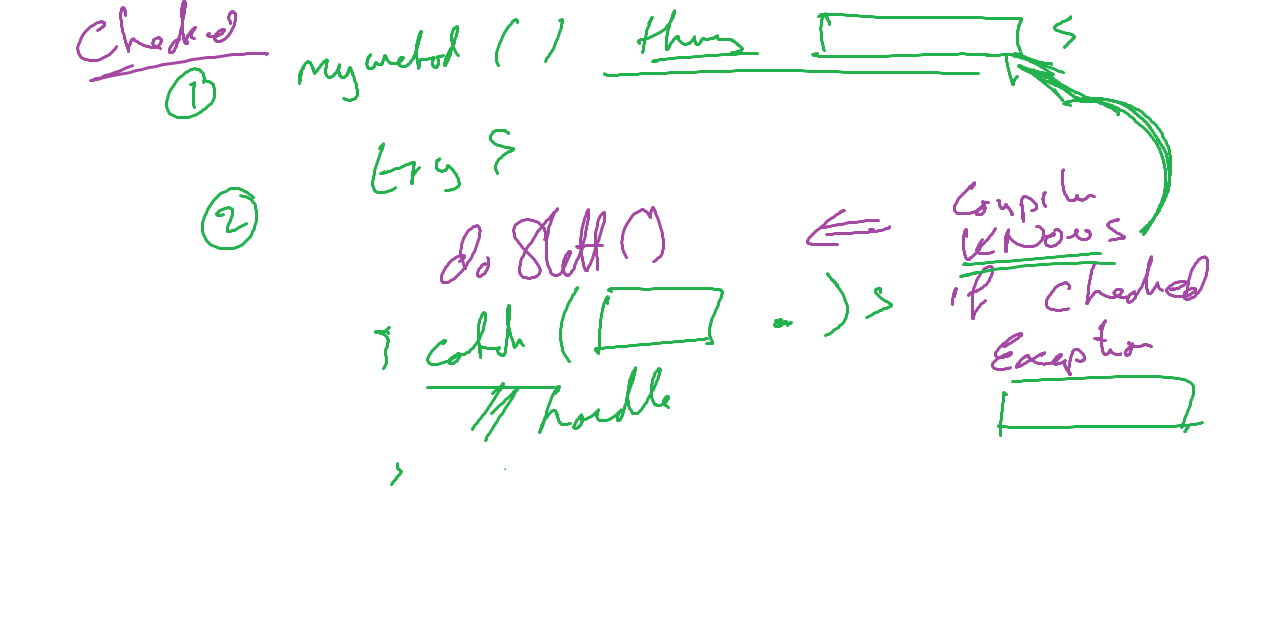 Checked
① mymethod ( ) throws {
② try {
do Stuff ()
} catch ( . ) {
// handle
}
Compiler
KNOWS
if Checked
Exception